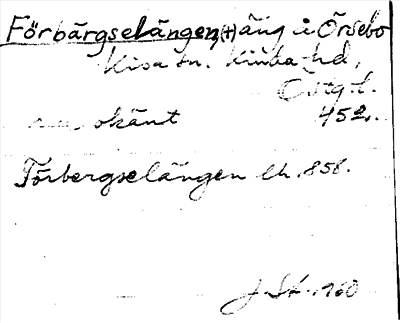 Förbärgselängen, (†) äng å Örsebo
Kisa sn. Kinda hd,
Östg.l.
okänt 452.
Förbergselängen lh. 858.
J. St. 1960